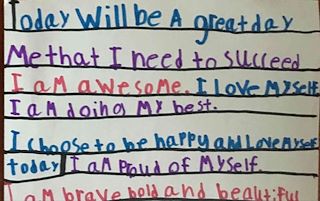 Today Will be A great day
Me that I need to succeed
I am awesome. I love Myself
I am doing My best.
I choose to be happy and Love Myself
today I am Proud of Myself.
I am brave bold and beautiful